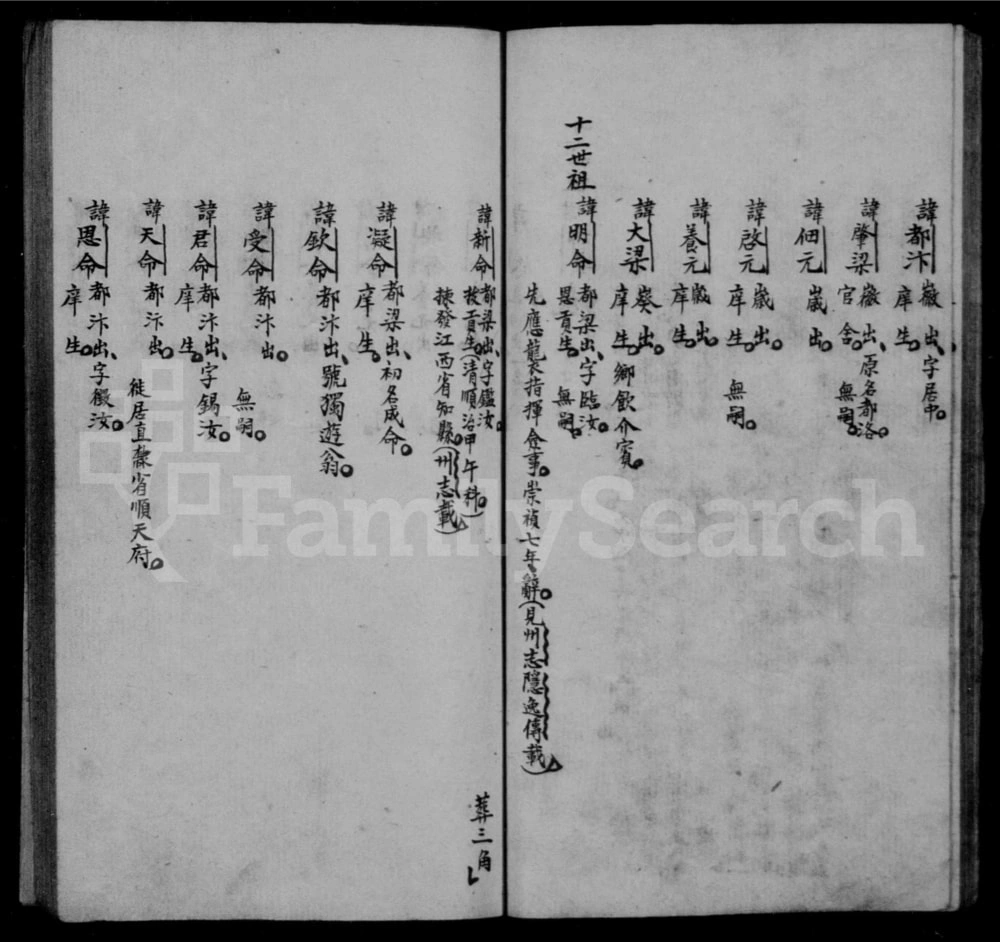 諱都汴 巖出、字居中。
庠生。
諱肇梁 巖出、原名都洛。
官舍。 無嗣。
諱佃元 崴出。
諱啓元 崴出。
庠生。 無嗣。
諱養元 崴出。
庠生。
諱大梁 葵出。
庠生。鄉飲介賓。
十二世祖
諱明命 都梁出、字臨汝。
恩貢生。 無嗣。
先應襲衣指揮僉事。崇禎七年辭。(見州志隱逸傳載)
諱新命 都梁出、字鑑汝。
拔貢生。(清順治甲午科。)
揀發江西省知縣。(州志載) 葬三角
諱凝命 都梁出、初名成命。
庠生。
諱欽命 都汴出、號獨遊翁。
諱受命 都汴出。
無嗣。
諱君命 都汴出、字錫汝。
庠生。
諱天命 都汴出。
徙居直隸省順天府。
諱思命 都汴出、字徽汝。
庠生。
FamilySearch